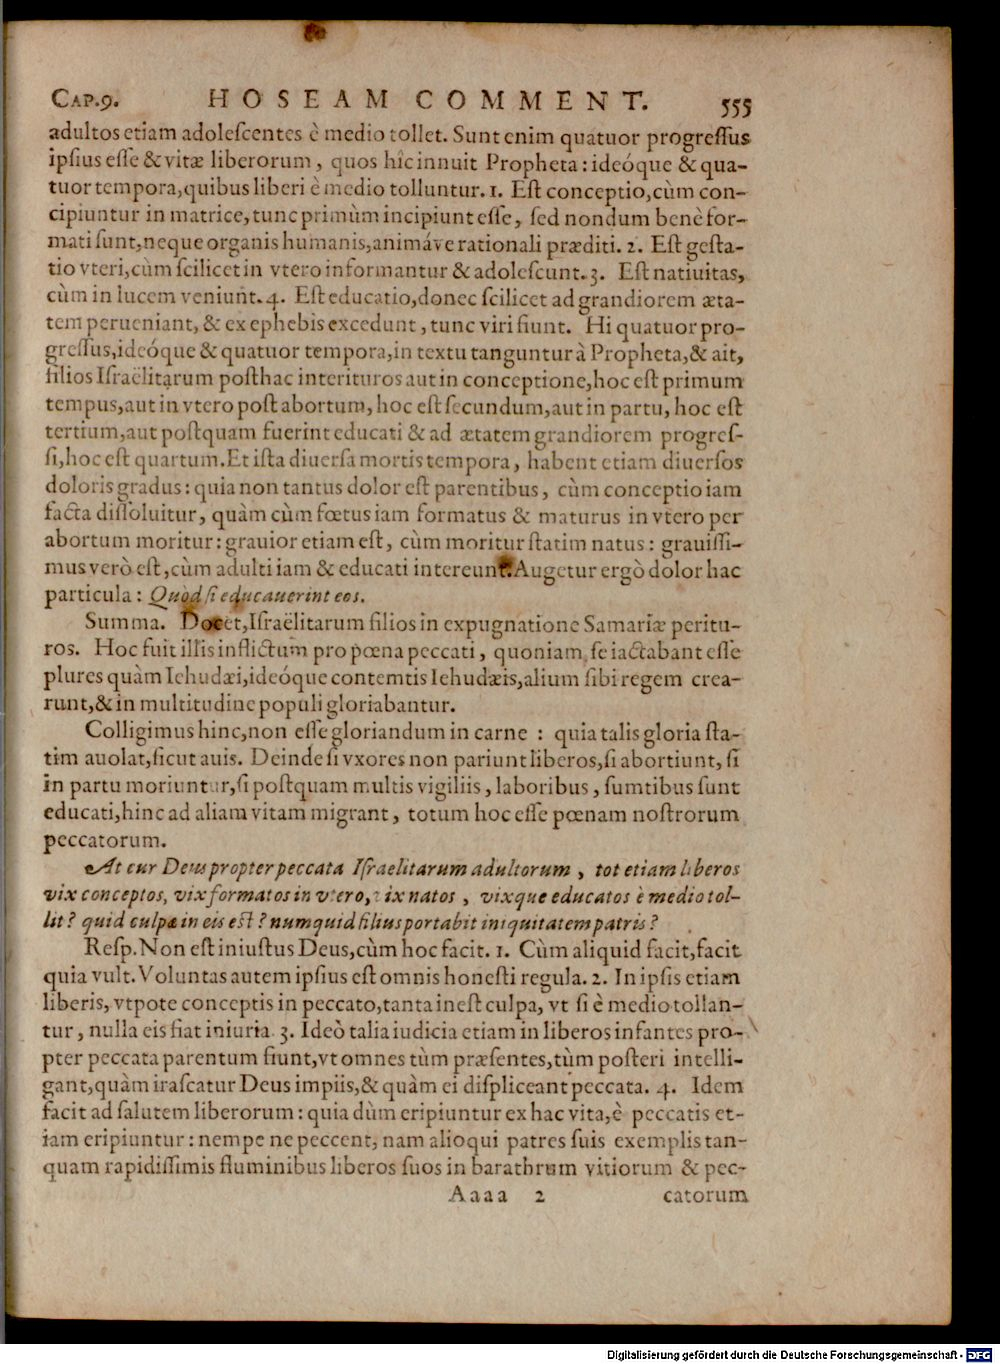 CAP.9. HOSEAM COMMENT. 555
adultos etiam adoleſcentes è medio tollet. Sunt enim quatuor progreſſus
ipſius eſſe & vitæ liberorum, quos hîc innuit Propheta: ideóque & qua-
tuor tempora, quibus liberi è medio tolluntur. 1. Eſt conceptio, cùm con-
cipiuntur in matrice, tunc primùm incipiunt eſſe, ſed nondum benè for-
mati ſunt, neque organis humanis, animáve rationali præditi. 2. Eſt geſta-
tio vteri, cùm ſcilicet in vtero informantur & adoleſcunt. 3. Eſt natiuitas,
cùm in lucem veniunt. 4. Eſt educatio, donec ſcilicet ad grandiorem æta-
tem perueniant, & ex ephebis excedunt, tunc viri fiunt. Hi quatuor pro-
greſſus, ideóque & quatuor tempora, in textu tanguntur à Propheta, & ait,
filios Iſraëlitarum poſthac interituros aut in conceptione, hoc eſt primum
tempus, aut in vtero poſt abortum, hoc eſt ſecundum, aut in partu, hoc eſt
tertium, aut poſtquam fuerint educati & ad ætatem grandiorem progreſ-
ſi, hoc eſt quartum. Et iſta diuerſa mortis tempora, habent etiam diuerſos
doloris gradus: quia non tantus dolor eſt parentibus, cùm conceptio iam
facta diſſoluitur, quàm cùm fœtus iam formatus & maturus in vtero per
abortum moritur: grauior etiam eſt, cùm moritur ſtatim natus: grauiſſi-
mus verò eſt, cùm adulti iam & educati intereunt. Augetur ergò dolor hac
particula: Quòd ſi educauerint eos.
Summa. Docet, Iſraëlitarum filios in expugnatione Samariæ peritu-
ros. Hoc fuit illis inflictum pro pœna peccati, quoniam ſe iactabant eſſe
plures quàm Iehudæi, ideóque contemtis Iehudæis, alium ſibi regem crea-
runt, & in multitudine populi gloriabantur.
Colligimus hinc, non eſſe gloriandum in carne : quia talis gloria ſta-
tim auolat, ſicut auis. Deinde ſi vxores non pariunt liberos, ſi abortiunt, ſi
in partu moriuntur, ſi poſtquam multis vigiliis, laboribus, ſumtibus ſunt
educati, hinc ad aliam vitam migrant, totum hoc eſſe pœnam noſtrorum
peccatorum.
At cur Deus propter peccata Iſraelitarum adultorum, tot etiam liberos
vix conceptos, vix formatos in vtero, vix natos, vixque educatos è medio tol-
lit? quid culpæ in eis eſt? numquid filius portabit iniquitatem patris?
Reſp. Non eſt iniuſtus Deus, cùm hoc facit. 1. Cùm aliquid facit, facit
quia vult. Voluntas autem ipſius eſt omnis honeſti regula. 2. In ipſis etiam
liberis, vtpote conceptis in peccato, tanta ineſt culpa, vt ſi è medio tollan-
tur, nulla eis fiat iniuria. 3. Ideò talia iudicia etiam in liberos infantes pro-
pter peccata parentum fiunt, vt omnes tùm præſentes, tùm poſteri intelli-
gant, quàm iraſcatur Deus impiis, & quàm ei diſpliceant peccata. 4. Idem
facit ad ſalutem liberorum: quia dùm eripiuntur ex hac vita, è peccatis et-
iam eripiuntur: nempe ne peccent, nam alioqui patres ſuis exemplis tan-
quam rapidiſſimis fluminibus liberos ſuos in barathrum vitiorum & pec-
Aaaa 2 catorum
Digitalisierung gefördert durch die Deutsche Forschungsgemeinschaft - DFG